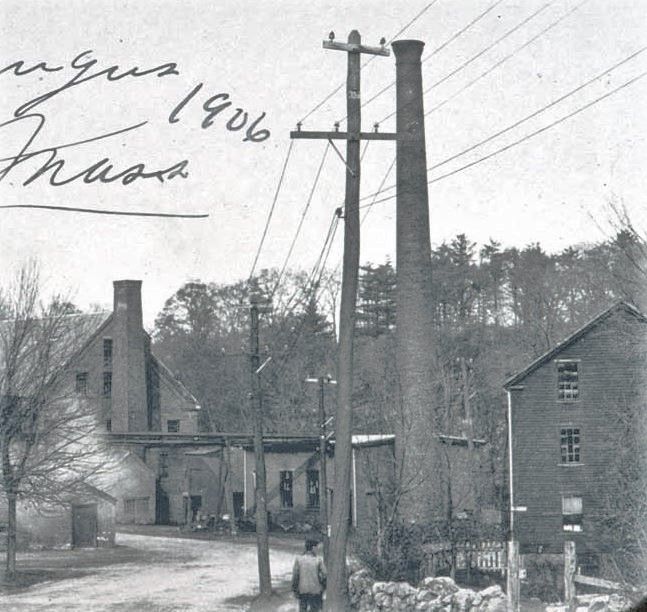 ugus
1906
Mass